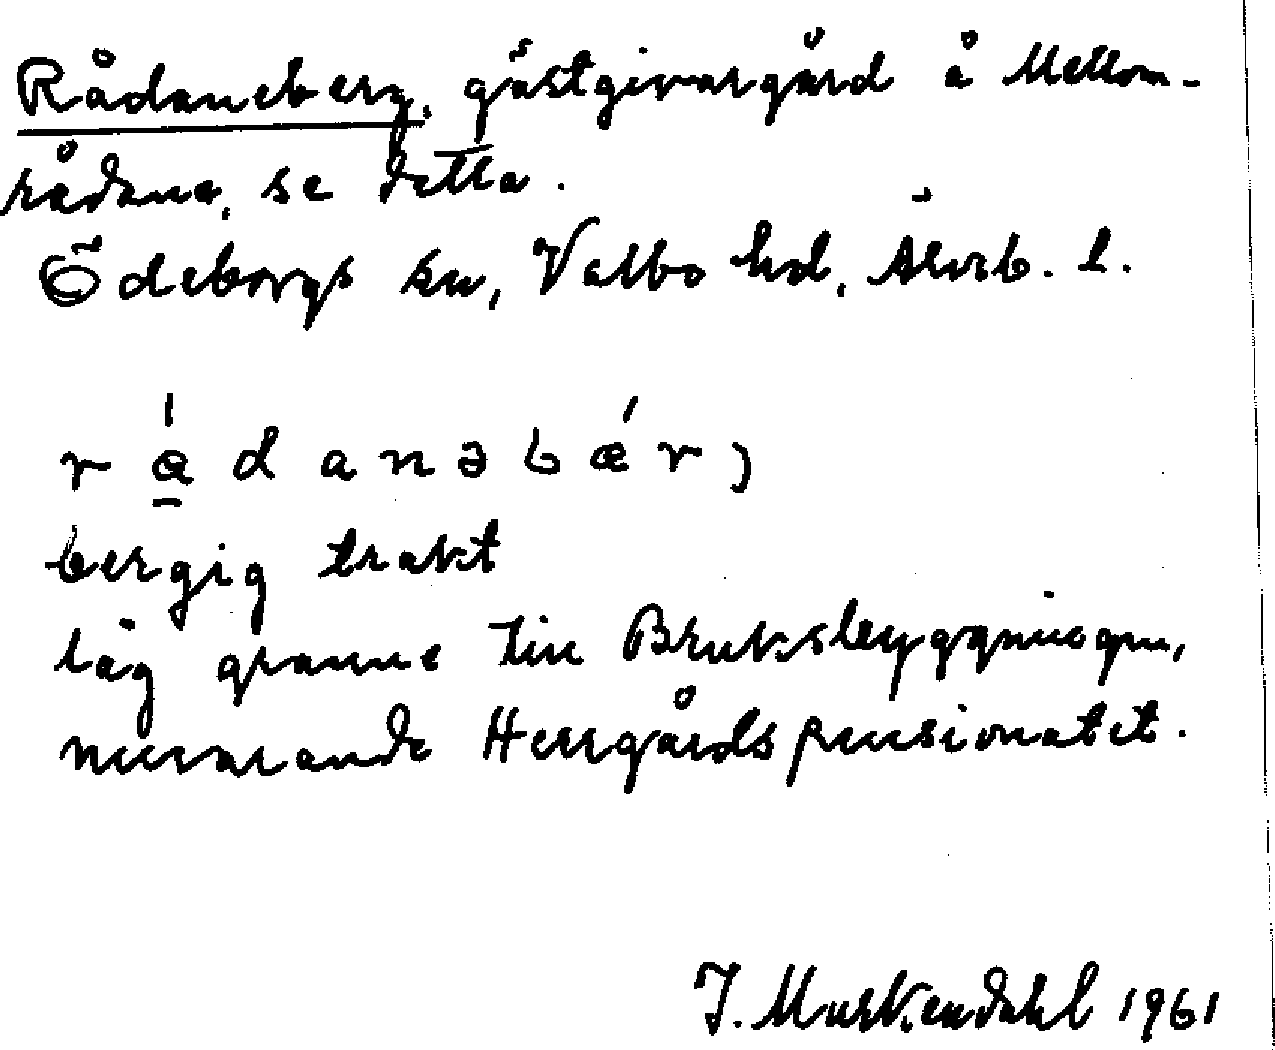 Rådaneberg, gästgivargård å Mellom-
rådane, se detta.
Ödeborgs sn, Valbo hd, Älvsb. l.
r ǻ̱ d a n ə b ǽ r,
bergig trakt
låg granne till Bruksbyggningen,
nuvarande Herrgårdspensionatet.
J. Murkendahl 1961